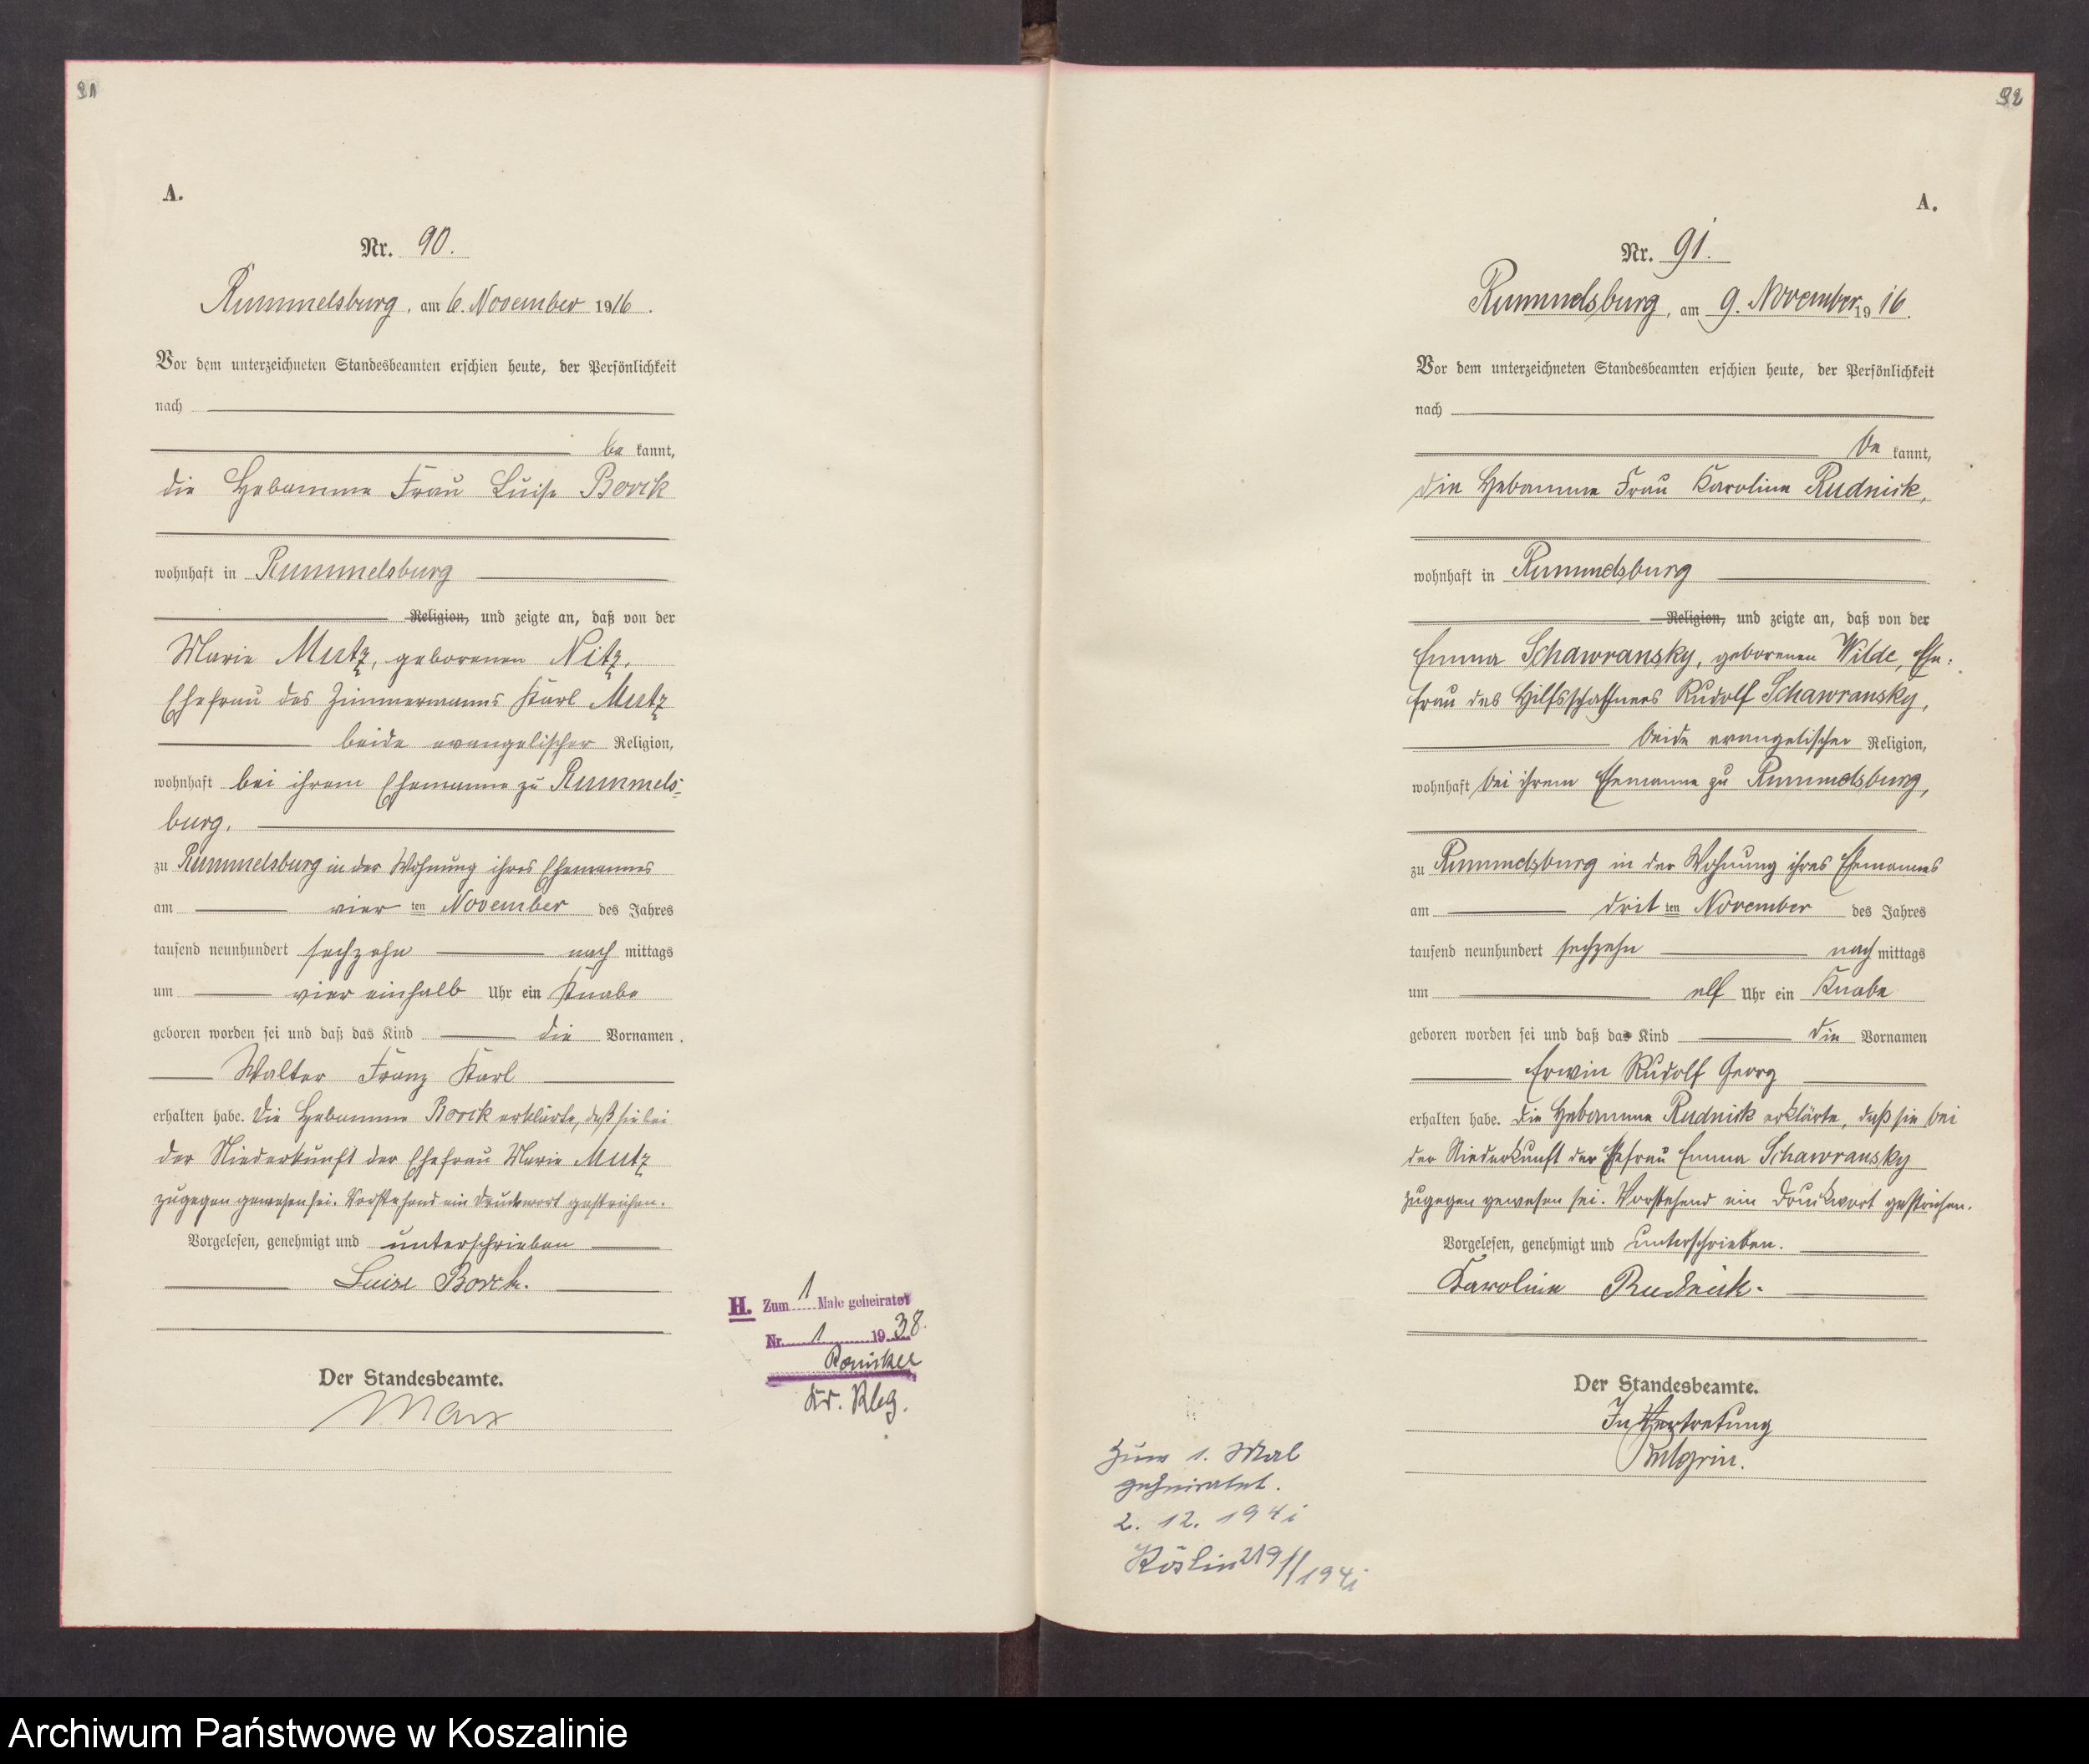 91
A.
Nr. 90.
Rummelsburg, am 6. November 1916.
Vor dem unterzeichneten Standesbeamten erschien heute, der Persönlichkeit
nach
be kannt,
die Hebamme Frau Luise Borck
wohnhaft in Rummelsburg
Religion, und zeigte an, daß von der
Marie Mutz, geborenen Nitz,
Ehefrau des Zimmermanns Karl Mutz
beide evangelischer Religion,
wohnhaft bei ihrem Ehemanne zu Rummels-
burg.
zu Rummelsburg in der Wohnung ihres Ehemannes
am vier ten November des Jahres
tausend neunhundert sechzehn nach mittags
um vier einhalb Uhr ein Knabe
geboren worden sei und daß das Kind die Vornamen
Walter Franz Karl
erhalten habe. Die Hebamme Borck erklärte, daß sie bei
der Niederkunft der Ehefrau Marie Mutz
zugegen gewesen sei. Vorstehend ein Druckwort gestrichen.
Vorgelesen, genehmigt und unterschrieben
Luise Borck.
Der Standesbeamte.
Marx
H. Zum 1 Male geheiratet
Nr. 1 1938.
Kr. Rbg.
92
A.
Nr. 91.
Rummelsburg, am 9. November 1916.
Vor dem unterzeichneten Standesbeamten erschien heute, der Persönlichkeit
nach
be kannt,
die Hebamme Frau Karoline Rudnick,
wohnhaft in Rummelsburg
Religion, und zeigte an, daß von der
Emma Schawransky, geborenen Wilde, Ehe-
frau des Hilfsschaffners Rudolf Schawransky,
beide evangelischer Religion,
wohnhaft bei ihrem Ehemanne zu Rummelsburg,
zu Rummelsburg in der Wohnung ihres Ehemannes
am drit ten November des Jahres
tausend neunhundert sechzehn nach mittags
um elf Uhr ein Knabe
geboren worden sei und daß das Kind die Vornamen
Erwin Rudolf Georg
erhalten habe. Die Hebamme Rudnick erklärte, daß sie bei
der Niederkunft der Ehefrau Emma Schawransky
zugegen gewesen sei. Vorstehend ein Druckwort gestrichen.
Vorgelesen, genehmigt und unterschrieben.
Karoline Rudnick.
Der Standesbeamte.
In Vertretung
Zum 1. Mal
geheiratet.
2. 12. 1941
Köslin 219/1941
Archiwum Państwowe w Koszalinie